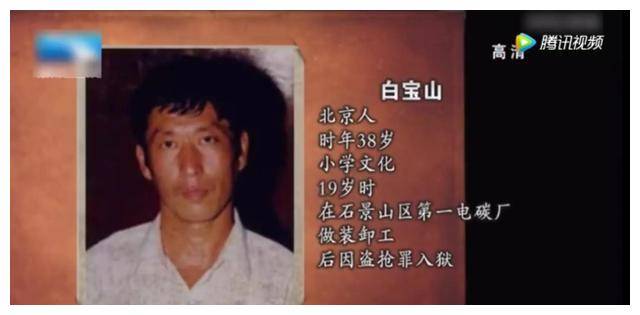 高清
腾讯视频
白宝山
北京人
时年38岁
小学文化
19岁时
在石景山区第一电碳厂
做装卸工
后因盗抢罪入狱